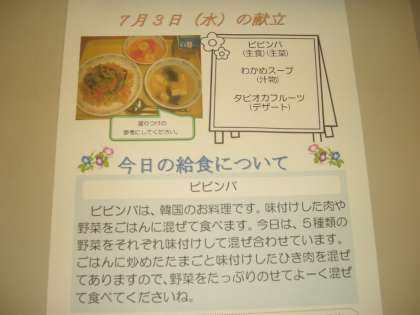 7月3日(水)の献立
ビビンバ
(主食)(主菜)
わかめスープ
(汁物)
タピオカフルーツ
(デザート)
盛りつけの
参考にしてください。
今日の給食について
ビビンバ
ビビンバは、韓国のお料理です。味付けした肉や
野菜をごはんに混ぜて食べます。今日は、5種類の
野菜をそれぞれ味付けして混ぜ合わせています。
ごはんに炒めたたまごと味付けしたひき肉を混ぜ
てありますので、野菜をたっぷりのせてよーく混ぜ
て食べてくださいね。